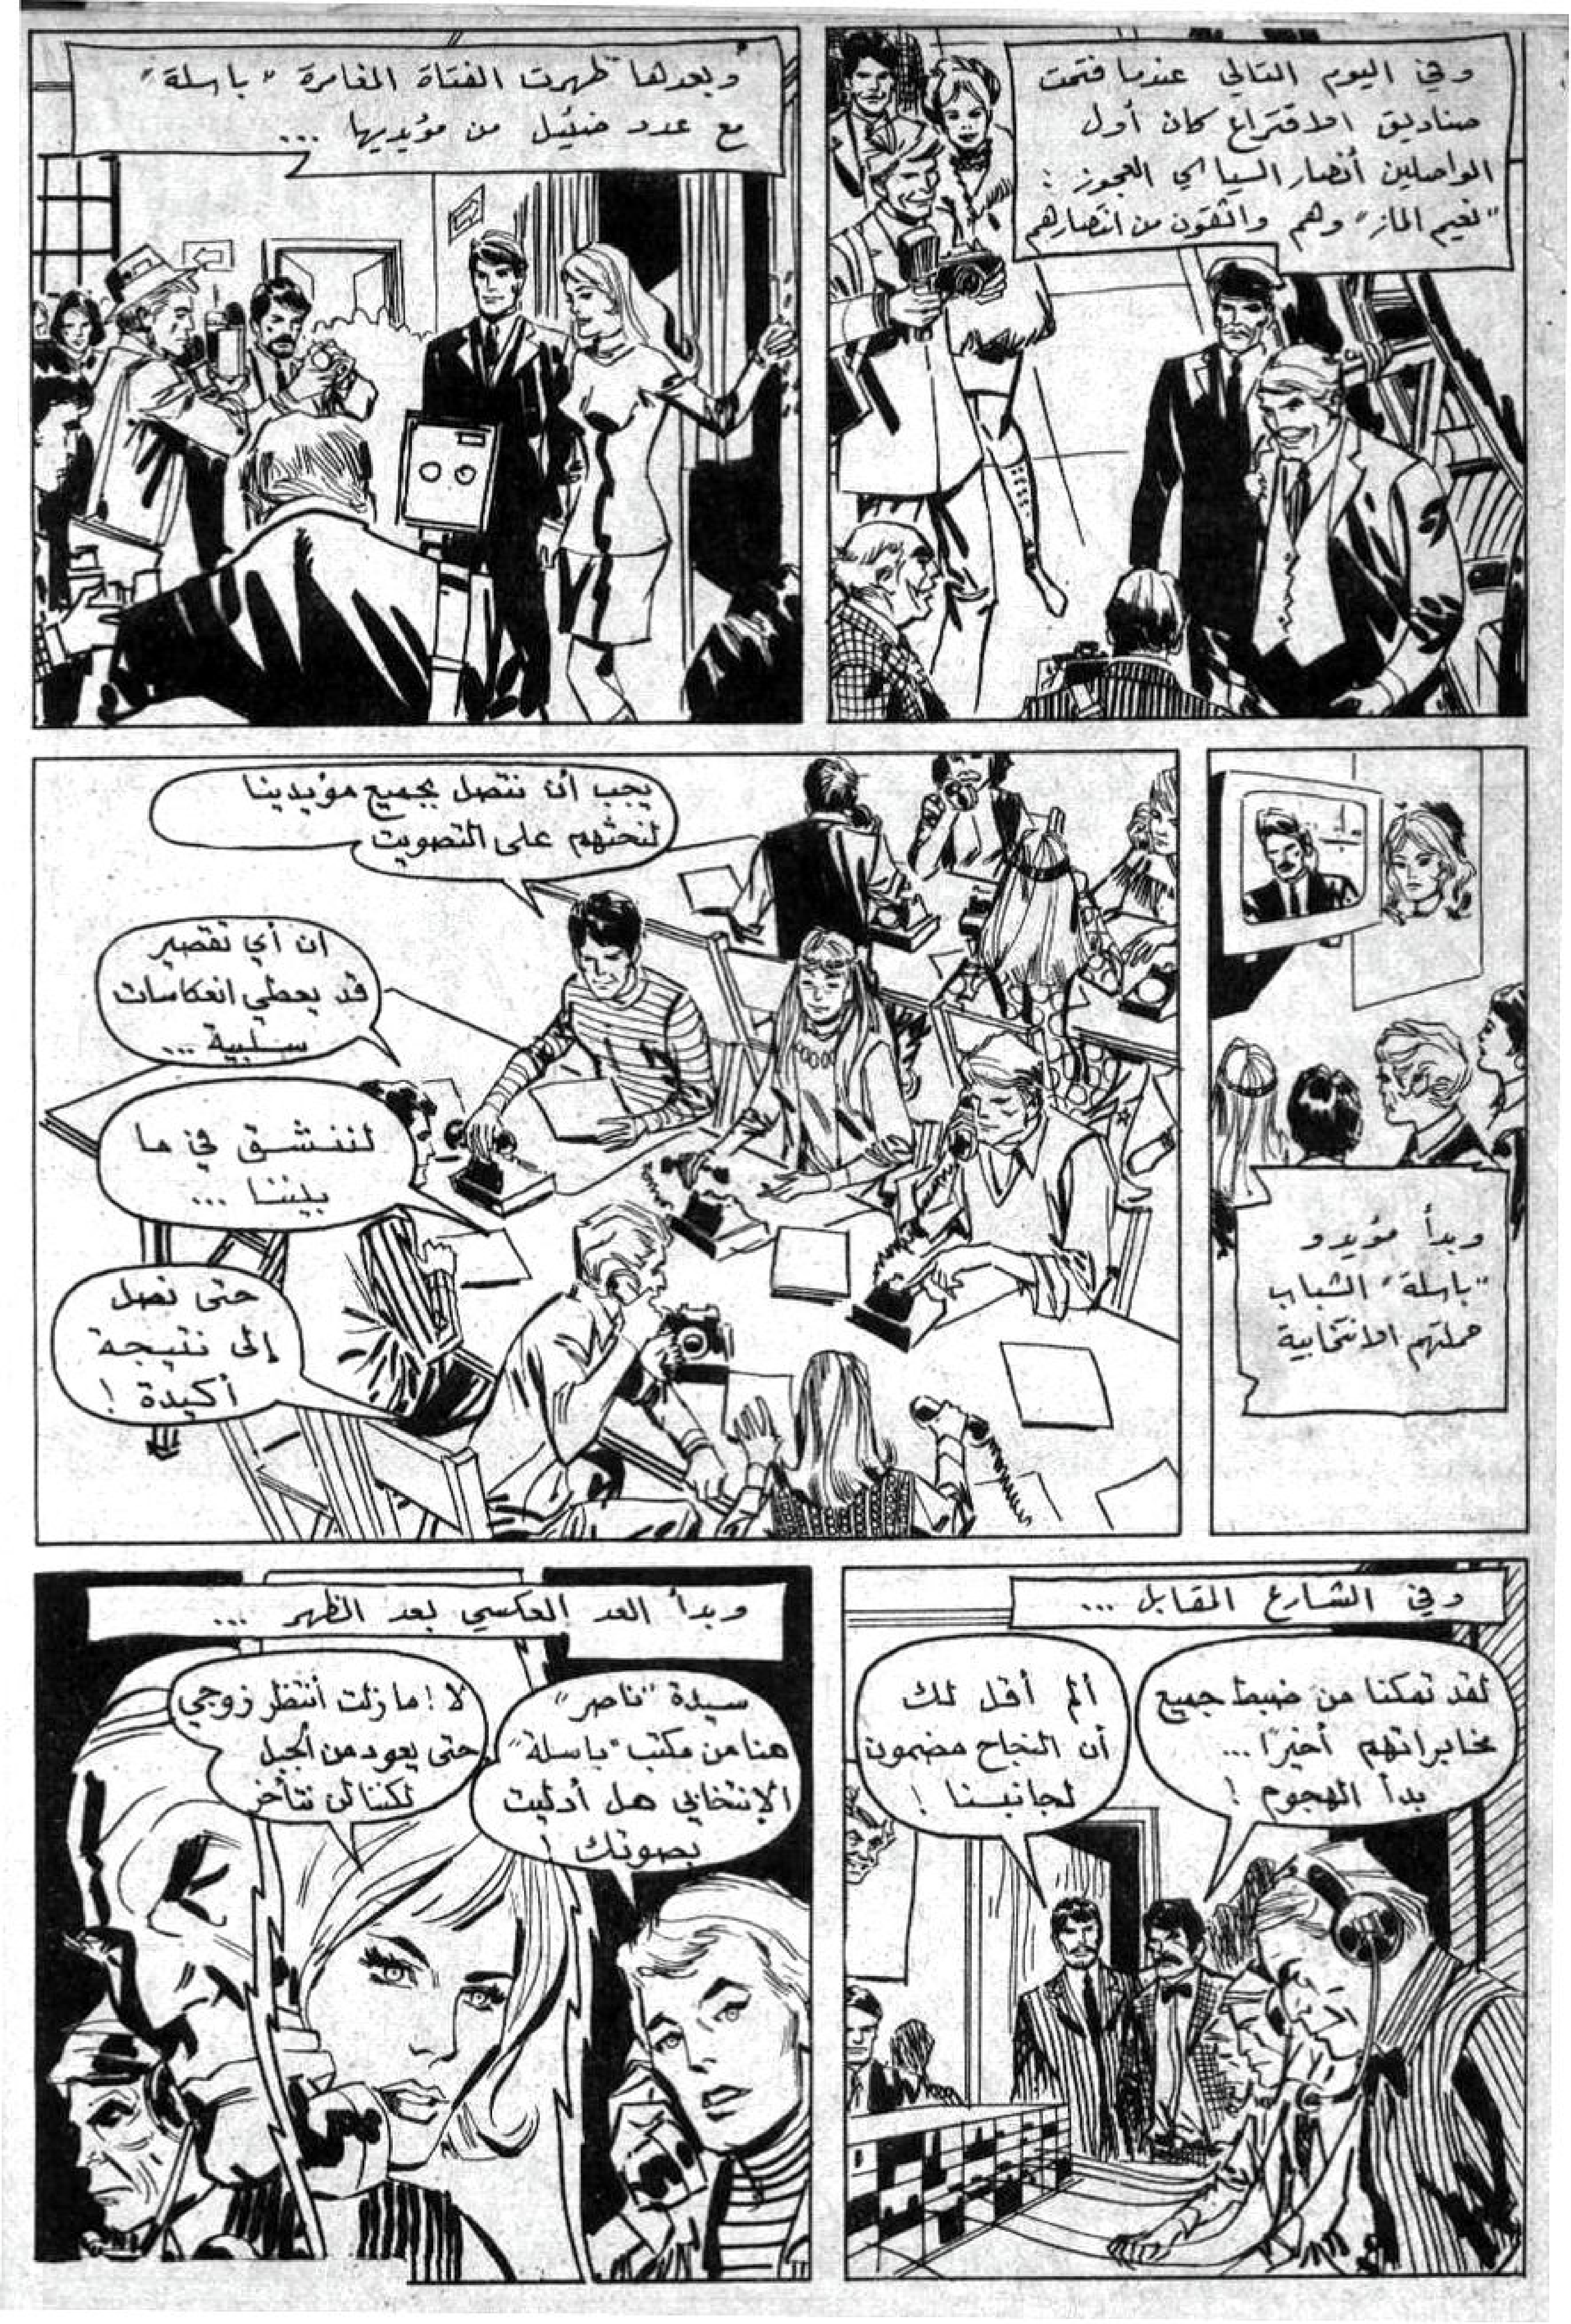 وفي اليوم التالي عندما فتحت
صناديق الاقتراع كان أول
الواصلين أنصار السياسي العجوز :
"نعيم الماز" وهم واثقون من انتصارهم
وبعدها ظهرت الفتاة المغامرة "باسلة"
مع عدد ضئيل من مؤيديها ...
وبدأ مؤيدو
"باسلة" الشباب
حملتهم الانتخابية
يجب أن نتصل بجميع مؤيدينا
لنحثهم على التصويت
ان أي تقصير
قد يعطي انعكاسات
سلبية ...
لننسق في ما
بيننا ...
حتى نصل
إلى نتيجة
أكيدة !
وفي الشارع المقابل ...
لقد تمكنا من ضبط جميع
مخابراتهم أخيرًا ...
بدأ الهجوم !
ألم أقل لك
أن النجاح مضمون
لجانبنا !
وبدأ العد العكسي بعد الظهر ...
سيدة "ناصر"
هنا من مكتب "باسلة"
الإنتخابي هل أدليت
بصوتك !
لا ! ما زلت أنتظر زوجي
حتى يعود من الجبل
لكننا لن نتأخر